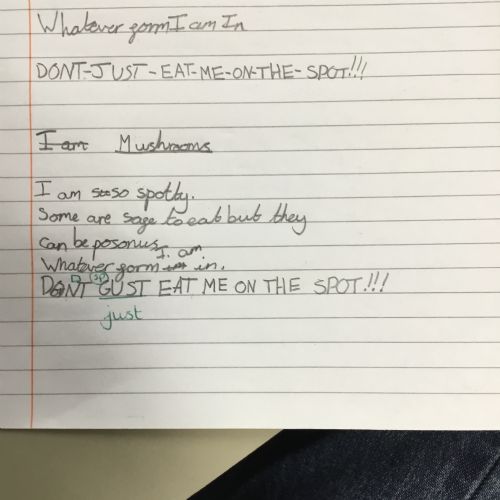 Whatever gorm I am In
DONT-JUST-EAT-ME-ON-THE-SPOT!!!
I am Mushrooms
I am so spotty.
Some are sage to eat but they
can be posonus.
I am
Whatever gorm in.
DONT GUST EAT ME ON THE SPOT!!!
just